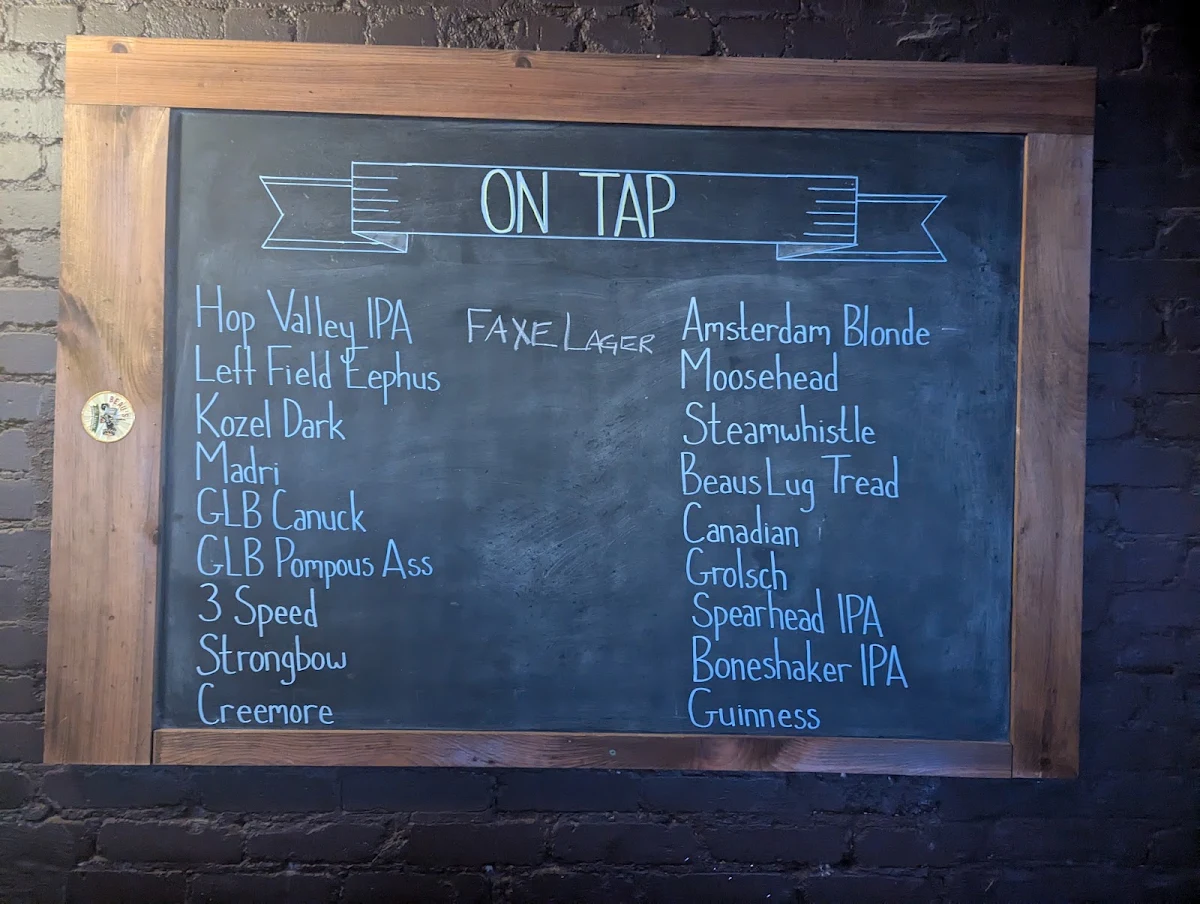 ON TAP
Hop Valley IPA
Left Field Eephus
Kozel Dark
Madri
GLB Canuck
GLB Pompous Ass
3 Speed
Strongbow
Creemore
FAXE LAGER
Amsterdam Blonde
Moosehead
Steamwhistle
Beaus Lug Tread
Canadian
Grolsch
Spearhead IPA
Boneshaker IPA
Guinness
BEAU'S